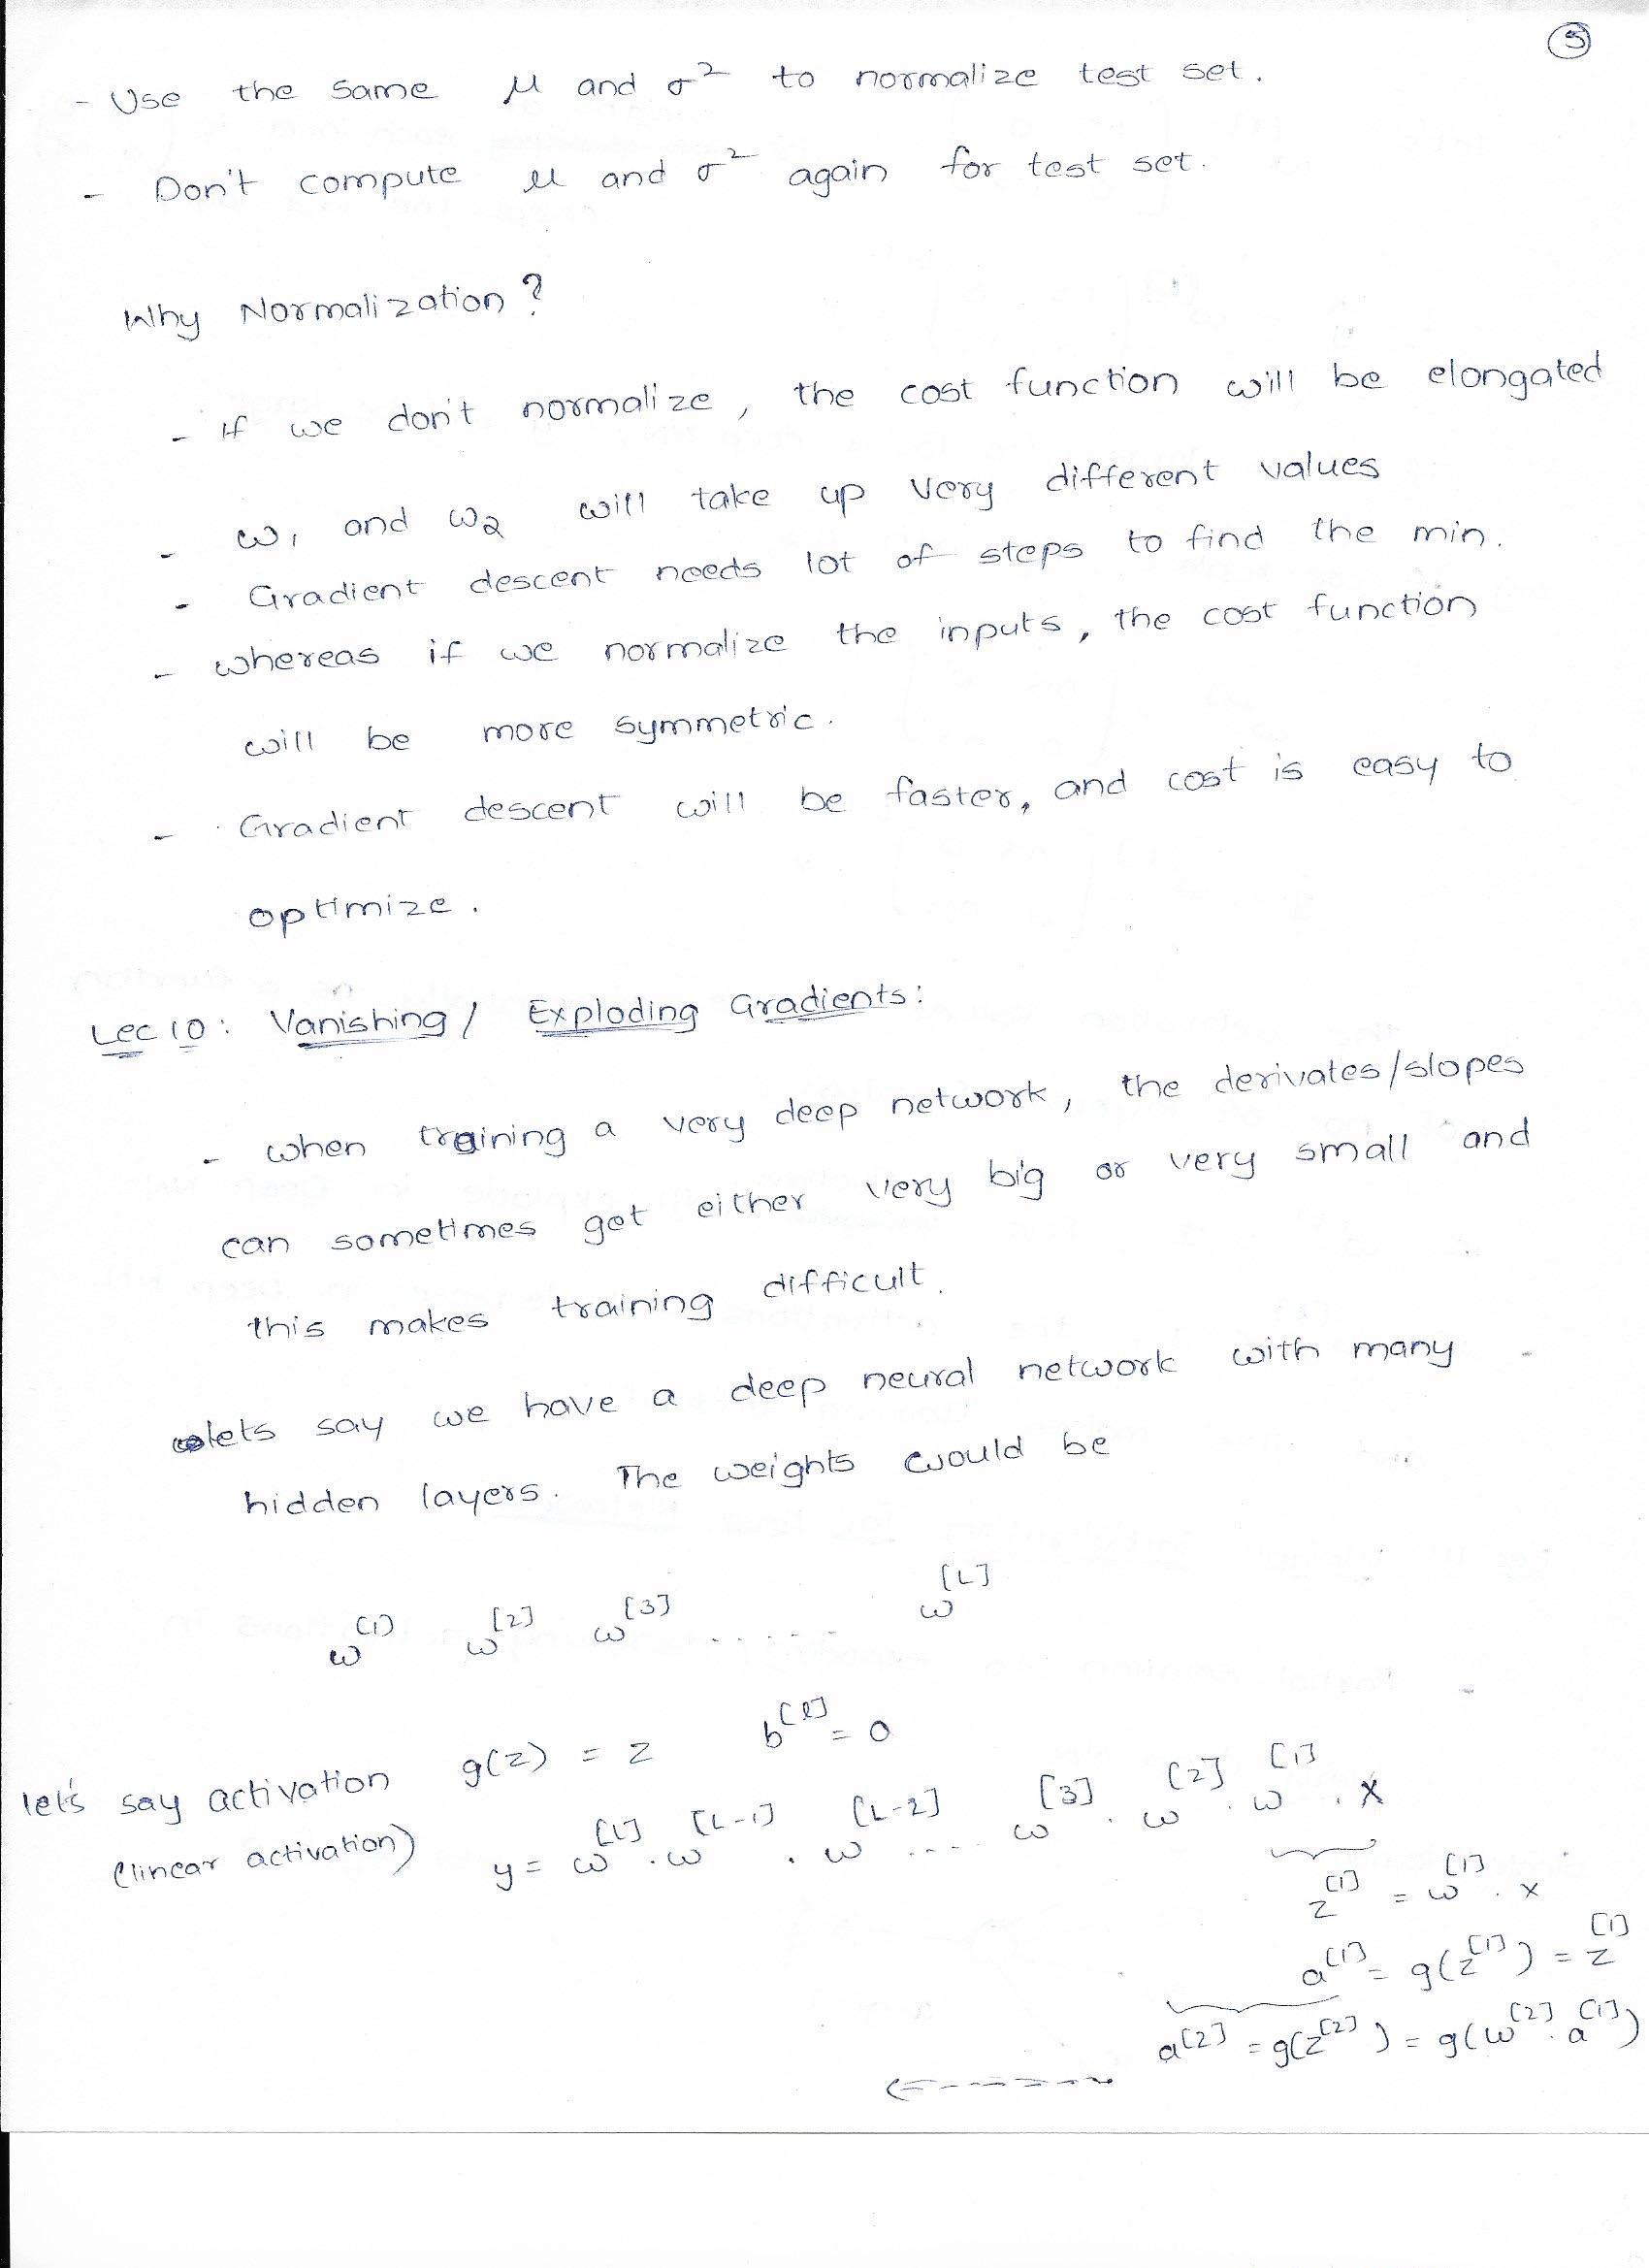 5
- Use the same μ and σ² to normalize test set.
- Don't compute μ and σ² again for test set.
Why Normalization?
- if we don't normalize, the cost function will be elongated
- w₁ and w₂ will take up very different values
- Gradient descent needs lot of steps to find the min.
- whereas if we normalize the inputs, the cost function
will be more symmetric.
- Gradient descent will be faster, and cost is easy to
optimize.
Lec 10: Vanishing / Exploding Gradients:
- when training a very deep network, the derivates/slopes
can sometimes get either very big or very small and
this makes training difficult.
lets say we have a deep neural network with many
hidden layers. The weights would be
w^[1] w^[2] w^[3] ...... w^[L]
let's say activation g(z) = z b^[l] = 0
(linear activation) y = w^[L] . w^[L-1] . w^[L-2] .... w^[3] . w^[2] . w^[1] . x
z^[1] = w^[1] . x
a^[1] = g(z^[1]) = z^[1]
a^[2] = g(z^[2]) = g(w^[2] . a^[1])